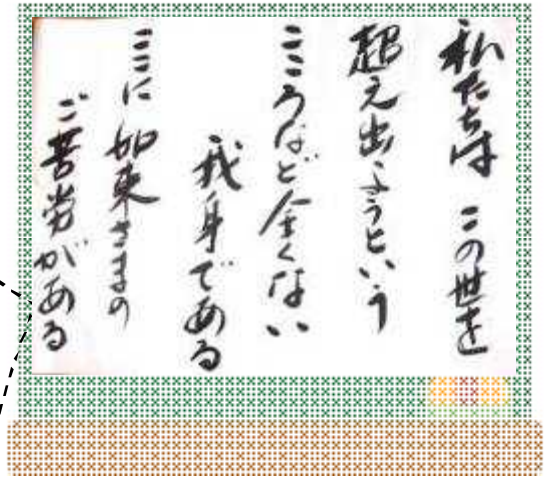 私たちは この世を
超え出ようという
こころなど全くない
我身である
ここに 如来さまの
ご苦労がある